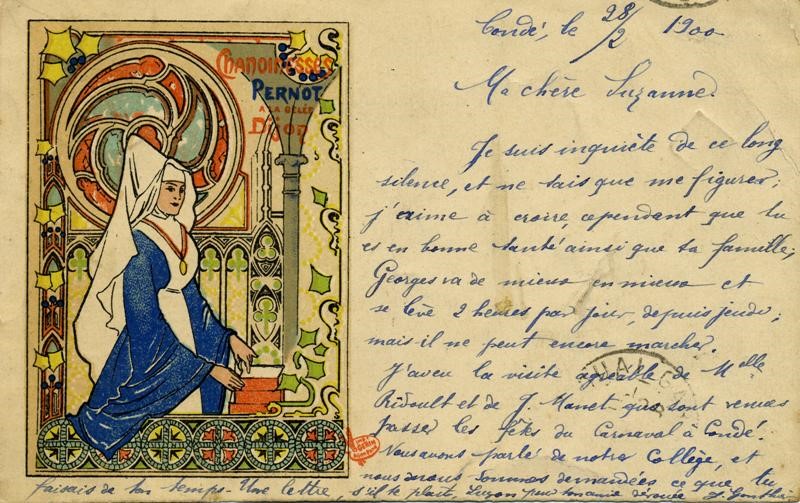 CHANOINESSES
PERNOT
A LA GELÉE
DIJON
Condé, le 28/2 1900
Ma chère Suzanne.
Je suis inquiète de ce long
silence, et ne sais que me figurer;
j'aime à croire, cependant que tu
es en bonne santé ainsi que ta famille;
Georges va de mieux en mieux et
se lève 2 heures par jour, depuis jeudi;
mais il ne peut encore marcher.
J'ai eu la visite agréable de Melle
Ridoult et de J. Manet qui sont venues
passer les fêtes du Carnaval à Condé.
Nous avons parlé de notre Collège, et
nous nous sommes demandées ce que tu
faisais de ton temps. Une lettre, s'il te plait, Suzon pour ton amie dévouée